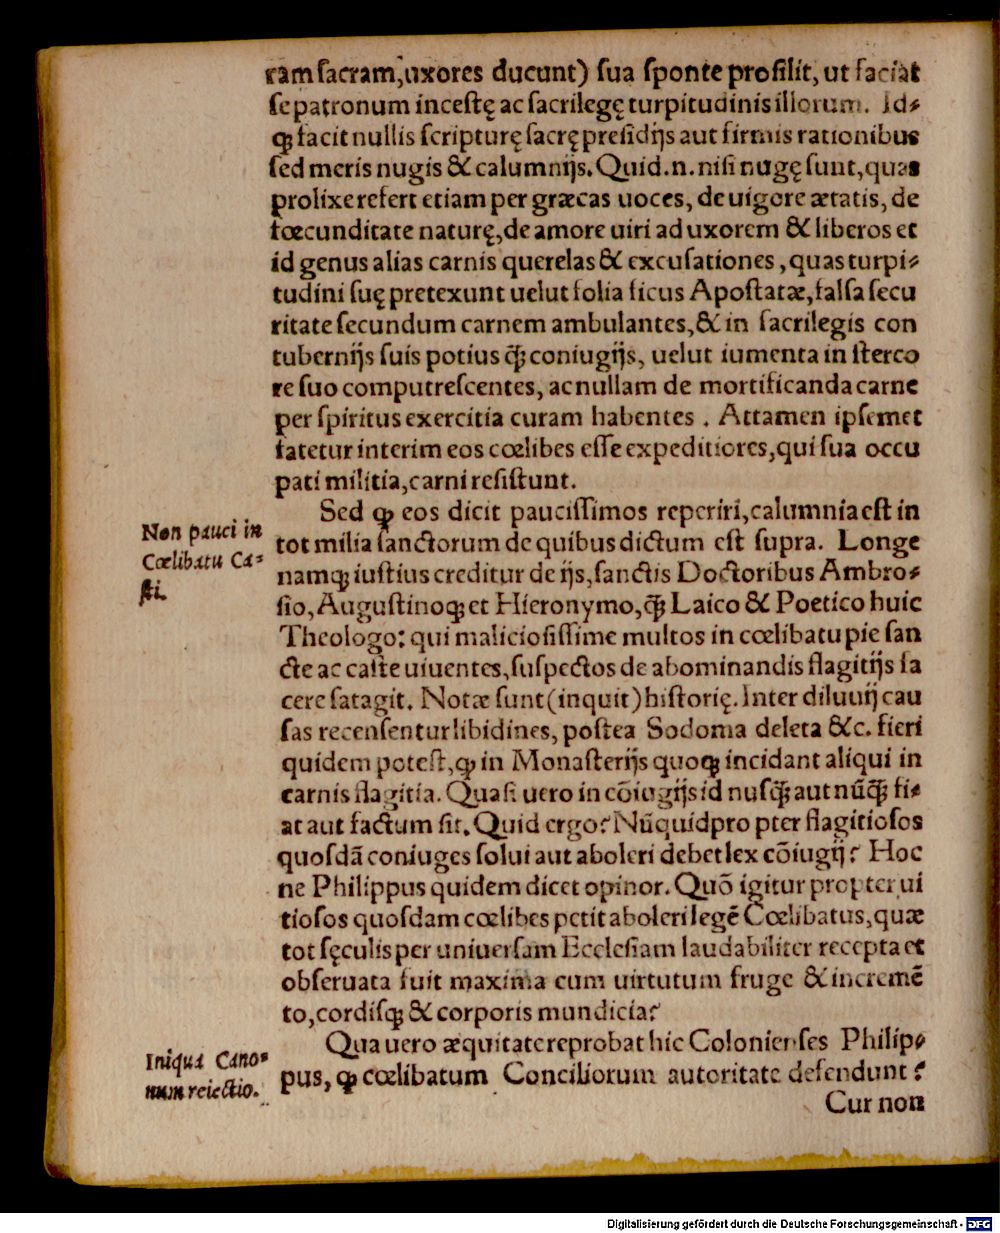 ram sacram, uxores ducunt) sua sponte prosilit, ut faciat
se patronum incestę ac sacrilegę turpitudinis illorum. Id⸗
ꝙ facit nullis scripturę sacrę presidijs aut firmis rationibus
sed meris nugis & calumnijs. Quid .n. nisi nugę sunt, quas
prolixe refert etiam per græcas uoces, de uigore ætatis, de
fœcunditate naturę, de amore uiri ad uxorem & liberos et
id genus alias carnis querelas & excusationes, quas turpi⸗
tudini suę pretexunt uelut folia ficus Apostatæ, falsa secu
ritate secundum carnem ambulantes, & in sacrilegis con
tubernijs suis potius q̃ȝ coniugijs, uelut iumenta in sterco
re suo computrescentes, ac nullam de mortificanda carne
per spiritus exercitia curam habentes . Attamen ipsemet
fatetur interim eos cœlibes esse expeditiores, qui sua occu
pati militia, carni resistunt.
Sed ꝙ eos dicit paucissimos reperiri, calumnia est in
Non pauci in
Cœlibatu Ca⸗
sti.
tot milia sanctorum de quibus dictum est supra. Longe
namqȝ iustius creditur de ijs, sanctis Doctoribus Ambro⸗
sio, Augustinoqȝ et Hieronymo, q̃ȝ Laico & Poetico huic
Theologo: qui maliciosissime multos in cœlibatu pie san
cte ac caste uiuentes, suspectos de abominandis flagitijs fa
cere satagit. Notæ sunt (inquit) historię. Inter diluuij cau
sas recensentur libidines, postea Sodoma deleta &c. fieri
quidem potest, ꝙ in Monasterijs quoqȝ incidant aliqui in
carnis flagitia. Quasi uero in cōiugijs id nusq̃ȝ aut nūq̃ȝ fi⸗
at aut factum sit. Quid ergo? Nūquid propter flagitiosos
quosdā coniuges solui aut aboleri debet lex cōiugij? Hoc
ne Philippus quidem dicet opinor. Quō igitur propter ui
tiosos quosdam cœlibes petit aboleri legē Cœlibatus, quæ
tot sęculis per uniuersam Ecclesiam laudabiliter recepta et
obseruata fuit maxima cum uirtutum fruge & incremē
to, cordisqȝ & corporis mundicia?
Qua uero æquitate reprobat hic Colonienses Philip⸗
Iniqua Cano⸗
num reiectio.
pus, ꝙ cœlibatum Conciliorum autoritate defendunt?
Cur non
Digitalisierung gefördert durch die Deutsche Forschungsgemeinschaft - DFG